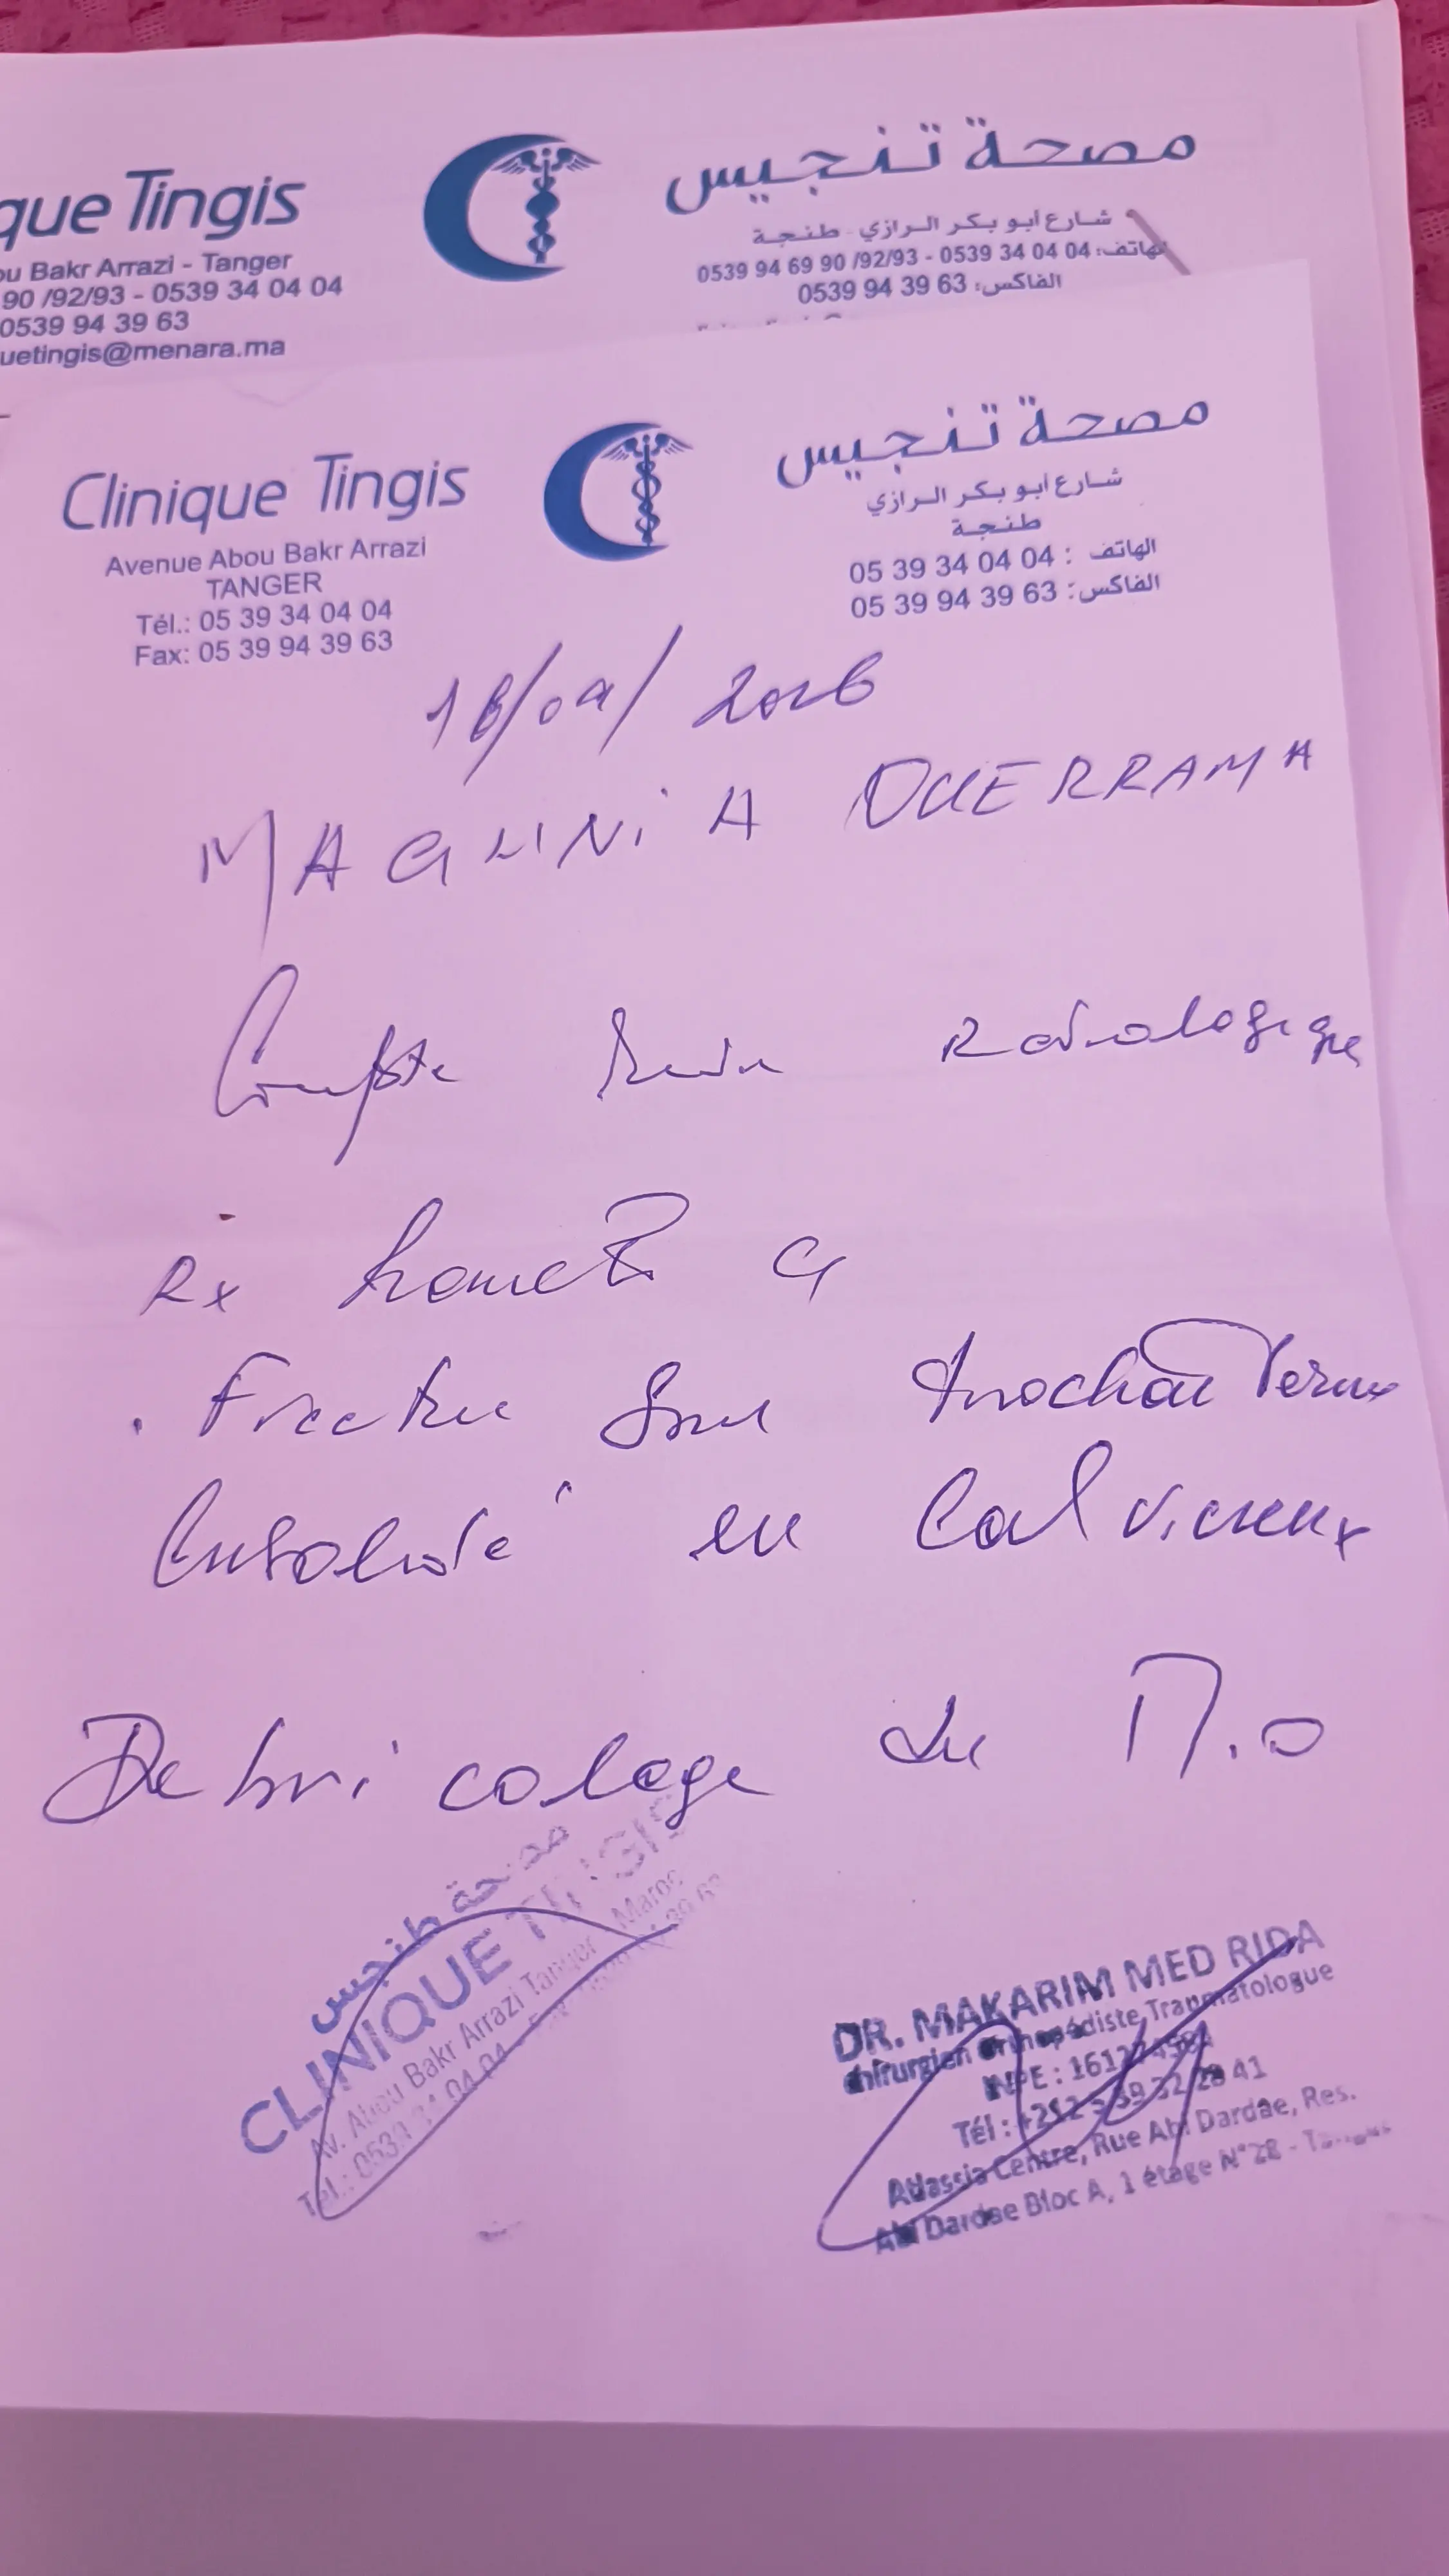 que Tingis
ou Bakr Arrazi - Tanger
90 /92/93 - 0539 34 04 04
0539 94 39 63
uetingis@menara.ma
مصحة تنجيس
شارع أبو بكر الرازي - طنجة
الهاتف: 04 04 34 0539 - 92/93/ 90 69 94 0539
الفاكس: 63 39 94 0539
Clinique Tingis
Avenue Abou Bakr Arrazi
TANGER
Tél.: 05 39 34 04 04
Fax: 05 39 94 39 63
مصحة تنجيس
شارع أبو بكر الرازي
طنجة
الهاتف : 04 04 34 39 05
الفاكس: 63 39 94 39 05
/2026
MAGUNIA OUERRAMA
Compte Rendu Radiologique
Rx G
. Fracture Sous trochanterienne
Consolidé en Cal vicieux
De bricolage du M.O
مصحة طنجيس
CLINIQUE TINGIS
Av. Abou Bakr Arrazi Tanger - Maroc
Tél.: 0539 34 04 04 -
DR. MAKARIM MED RIDA
Chirurgien Orthopédiste Traumatologue
INPE :
Tél : +212 5 39 32 28 41
Atlassia Centre, Rue Abi Dardae, Res.
Abi Dardae Bloc A, 1 étage N°28 -